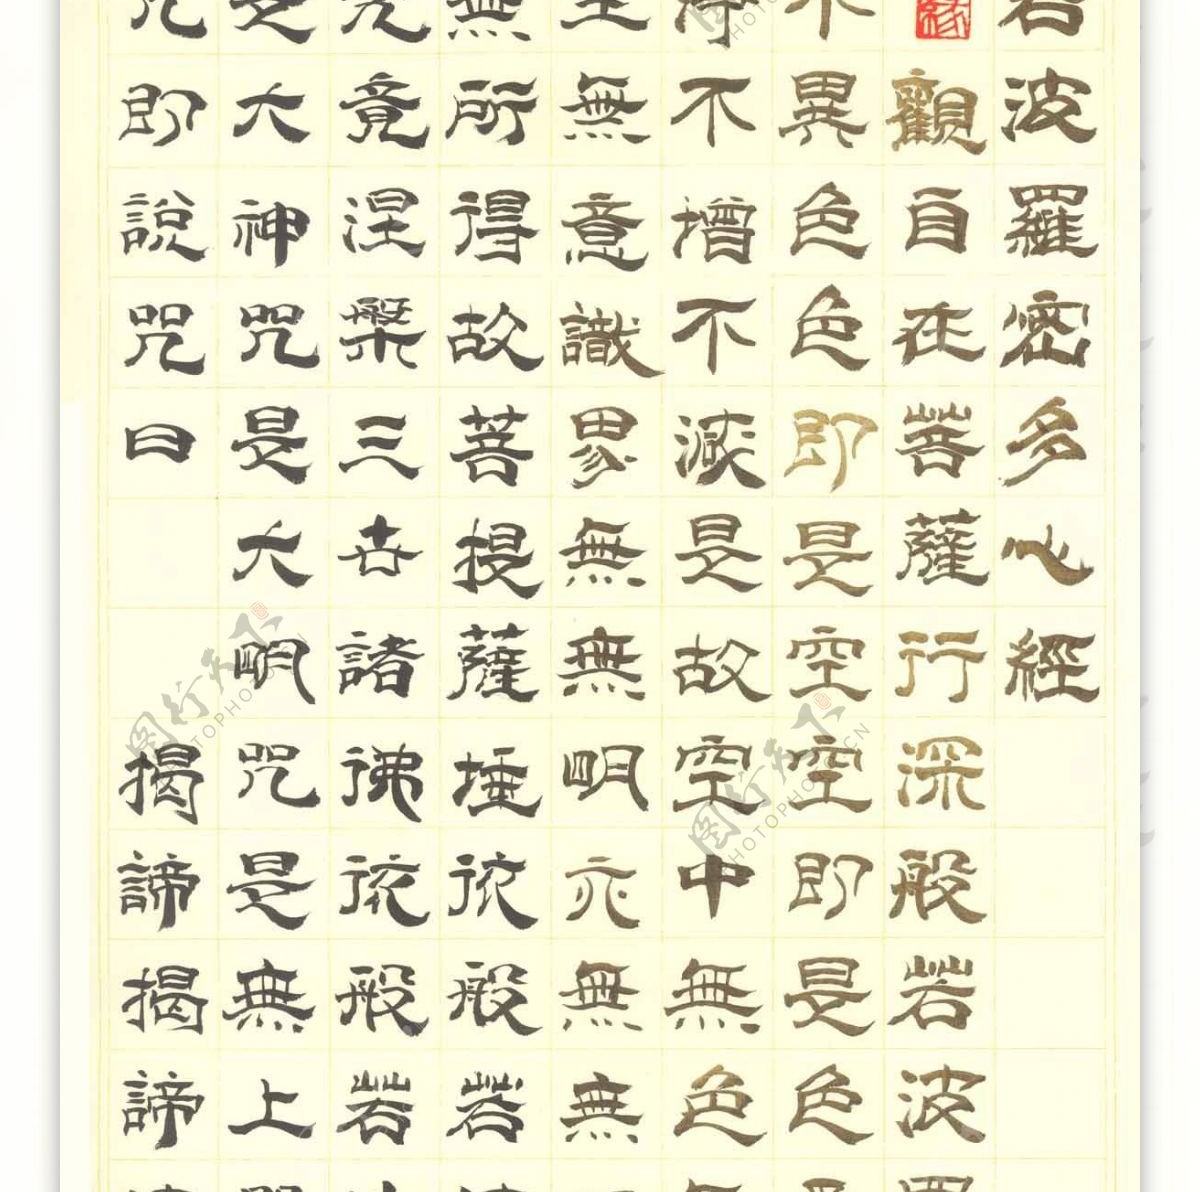 若波羅密多心經
緣
觀自在菩薩行深般若波
不異色色即是空空即是色
淨不增不減是故空中無色
至無意識界無無明亦無無
無所得故菩提薩埵依般若
究竟涅槃三世諸佛依般若
是大神咒是大明咒是無上
咒即說咒曰 揭諦揭諦
图行天下
PHOTOPHOTO.CN
图行天下
PHOTOPHOTO.CN